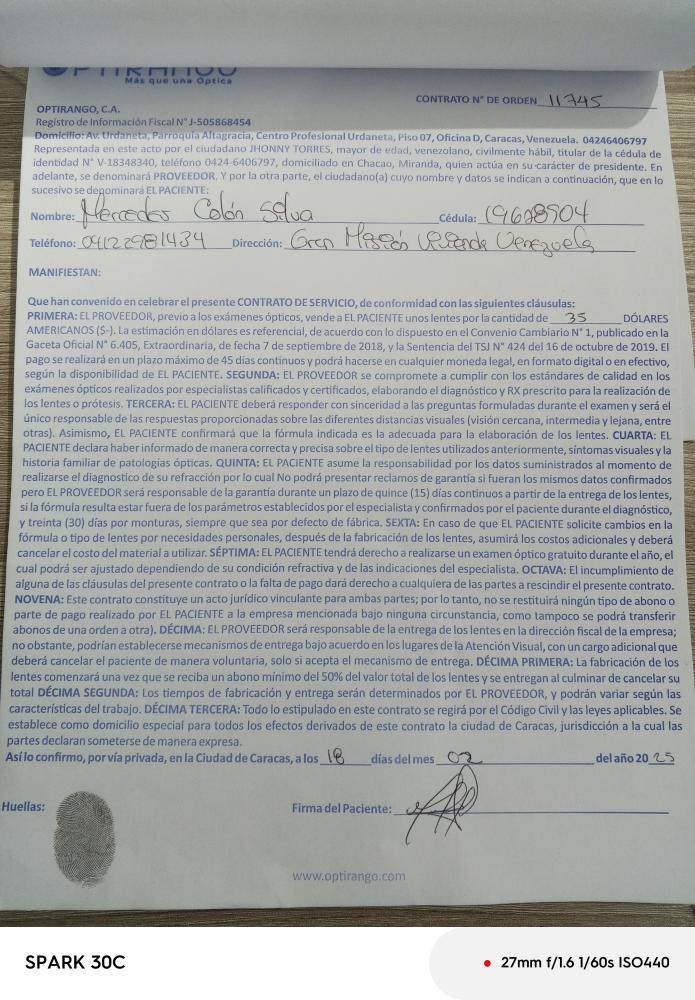 OPTIRANGO
Más que una Óptica
CONTRATO N° DE ORDEN 11745
OPTIRANGO, C.A.
Registro de Información Fiscal N° J-505868454
Domicilio: Av. Urdaneta, Parroquia Altagracia, Centro Profesional Urdaneta, Piso 07, Oficina D, Caracas, Venezuela. 04246406797
Representada en este acto por el ciudadano JHONNY TORRES, mayor de edad, venezolano, civilmente hábil, titular de la cédula de
identidad N° V-18348340, teléfono 0424-6406797, domiciliado en Chacao, Miranda, quien actúa en su carácter de presidente. En
adelante, se denominará PROVEEDOR. Y por la otra parte, el ciudadano(a) cuyo nombre y datos se indican a continuación, que en lo
sucesivo se denominará EL PACIENTE:
Nombre: Mercedes Colón Silva Cédula: 19628904
Teléfono: 04122981434 Dirección: Gran Misión Vivienda Venezuela
MANIFIESTAN:
Que han convenido en celebrar el presente CONTRATO DE SERVICIO, de conformidad con las siguientes cláusulas:
PRIMERA: EL PROVEEDOR, previo a los exámenes ópticos, vende a EL PACIENTE unos lentes por la cantidad de 35 DÓLARES
AMERICANOS ($-). La estimación en dólares es referencial, de acuerdo con lo dispuesto en el Convenio Cambiario N° 1, publicado en la
Gaceta Oficial N° 6.405, Extraordinaria, de fecha 7 de septiembre de 2018, y la Sentencia del TSJ N° 424 del 16 de octubre de 2019. El
pago se realizará en un plazo máximo de 45 días continuos y podrá hacerse en cualquier moneda legal, en formato digital o en efectivo,
según la disponibilidad de EL PACIENTE. SEGUNDA: EL PROVEEDOR se compromete a cumplir con los estándares de calidad en los
exámenes ópticos realizados por especialistas calificados y certificados, elaborando el diagnóstico y RX prescrito para la realización de
los lentes o prótesis. TERCERA: EL PACIENTE deberá responder con sinceridad a las preguntas formuladas durante el examen y será el
único responsable de las respuestas proporcionadas sobre las diferentes distancias visuales (visión cercana, intermedia y lejana, entre
otras). Asimismo, EL PACIENTE confirmará que la fórmula indicada es la adecuada para la elaboración de los lentes. CUARTA: EL
PACIENTE declara haber informado de manera correcta y precisa sobre el tipo de lentes utilizados anteriormente, síntomas visuales y la
historia familiar de patologías ópticas. QUINTA: EL PACIENTE asume la responsabilidad por los datos suministrados al momento de
realizarse el diagnostico de su refracción por lo cual No podrá presentar reclamos de garantía si fueran los mismos datos confirmados
pero EL PROVEEDOR será responsable de la garantía durante un plazo de quince (15) días continuos a partir de la entrega de los lentes,
si la fórmula resulta estar fuera de los parámetros establecidos por el especialista y confirmados por el paciente durante el diagnóstico,
y treinta (30) días por monturas, siempre que sea por defecto de fábrica. SEXTA: En caso de que EL PACIENTE solicite cambios en la
fórmula o tipo de lentes por necesidades personales, después de la fabricación de los lentes, asumirá los costos adicionales y deberá
cancelar el costo del material a utilizar. SÉPTIMA: EL PACIENTE tendrá derecho a realizarse un examen óptico gratuito durante el año, el
cual podrá ser ajustado dependiendo de su condición refractiva y de las indicaciones del especialista. OCTAVA: El incumplimiento de
alguna de las cláusulas del presente contrato o la falta de pago dará derecho a cualquiera de las partes a rescindir el presente contrato.
NOVENA: Este contrato constituye un acto jurídico vinculante para ambas partes; por lo tanto, no se restituirá ningún tipo de abono o
parte de pago realizado por EL PACIENTE a la empresa mencionada bajo ninguna circunstancia, como tampoco se podrá transferir
abonos de una orden a otra). DÉCIMA: EL PROVEEDOR será responsable de la entrega de los lentes en la dirección fiscal de la empresa;
no obstante, podrían establecerse mecanismos de entrega bajo acuerdo en los lugares de la Atención Visual, con un cargo adicional que
deberá cancelar el paciente de manera voluntaria, solo si acepta el mecanismo de entrega. DÉCIMA PRIMERA: La fabricación de los
lentes comenzará una vez que se reciba un abono mínimo del 50% del valor total de los lentes y se entregan al culminar de cancelar su
total DÉCIMA SEGUNDA: Los tiempos de fabricación y entrega serán determinados por EL PROVEEDOR, y podrán variar según las
características del trabajo. DÉCIMA TERCERA: Todo lo estipulado en este contrato se regirá por el Código Civil y las leyes aplicables. Se
establece como domicilio especial para todos los efectos derivados de este contrato la ciudad de Caracas, jurisdicción a la cual las
partes declaran someterse de manera expresa.
Así lo confirmo, por vía privada, en la Ciudad de Caracas, a los 18 días del mes 02 del año 2025
Huellas:
Firma del Paciente:
www.optirango.com
SPARK 30C
27mm f/1.6 1/60s ISO440